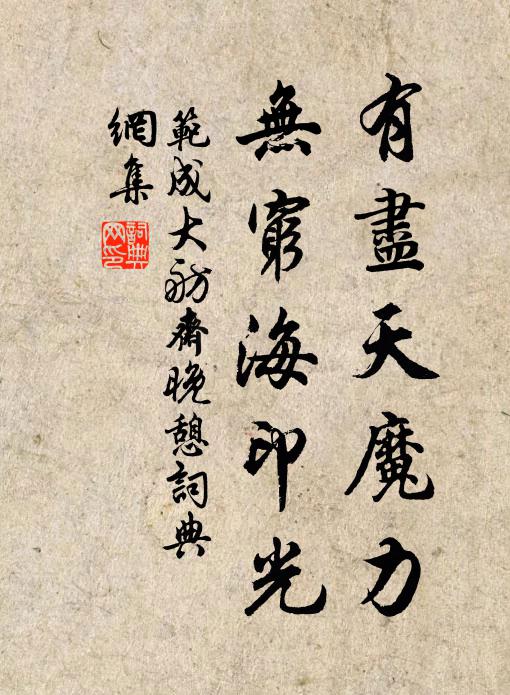 有盡天魔力
無窮海印光
範成大舫齋晚憩詞典
網集
詞典
網印